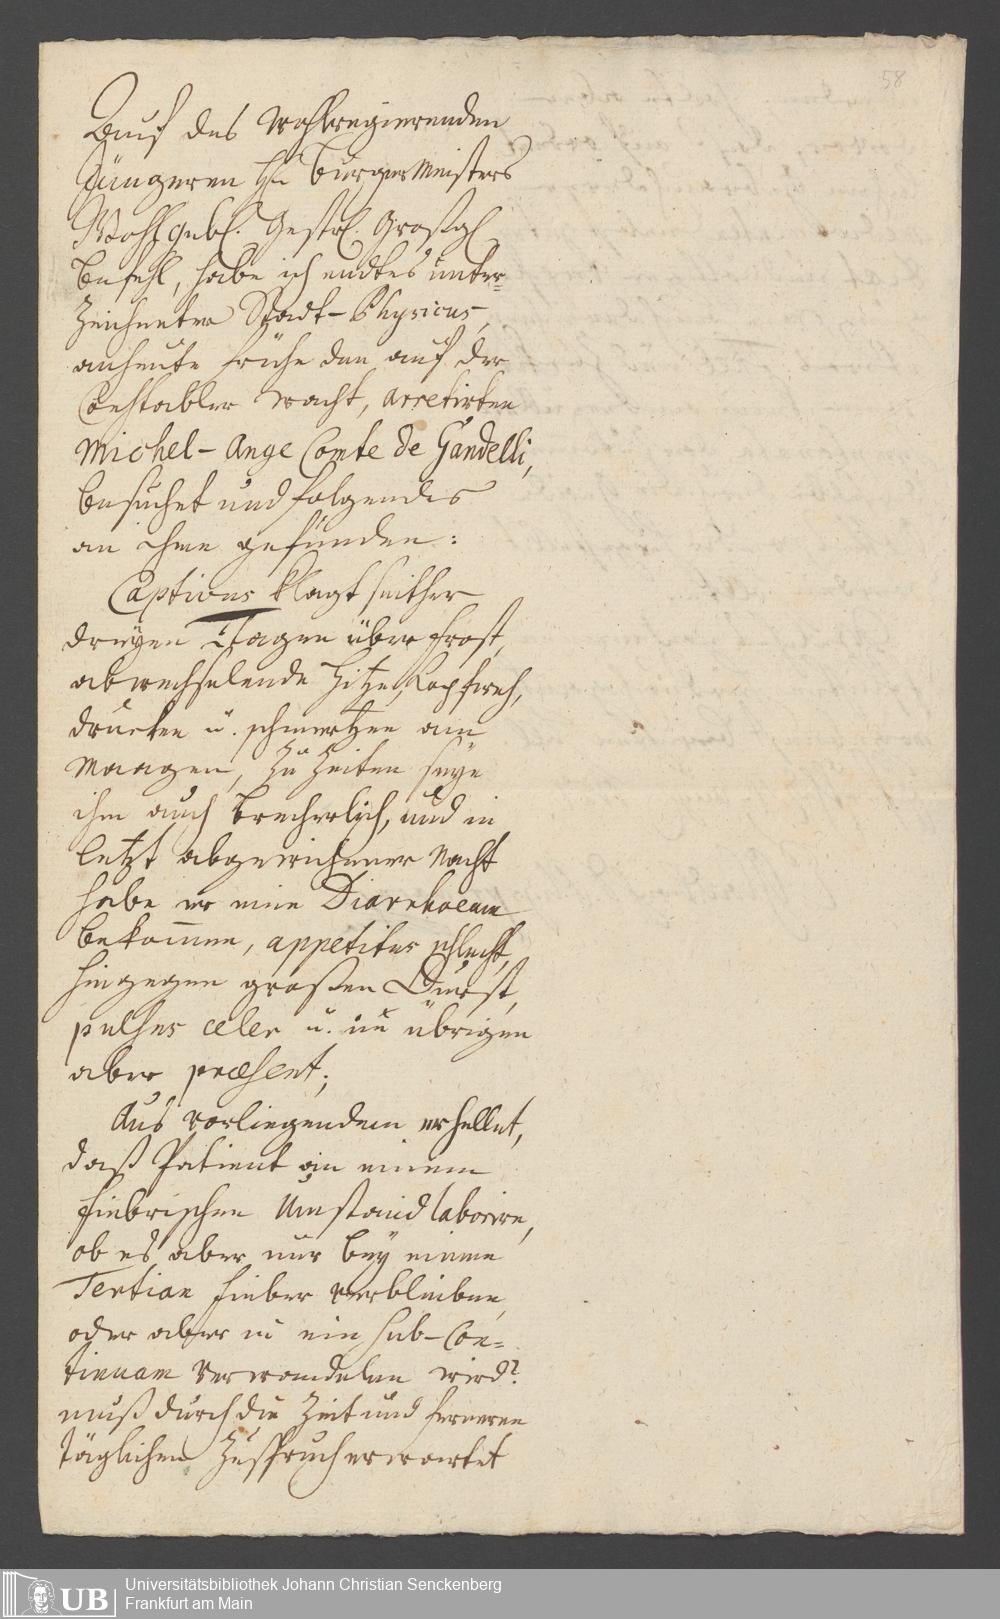 58
Auf des Wohlregierenden
Jüngeren Hn Burgermeisters
Wohlgebl. Gestr. Großgl
Befehl, habe ich endtes unter-
zeichneter Stadt-Physicus,
anheute frühe den auf der
Constabler Wacht, arretirten
Michel-Ange Comte de Gandelli,
besuchet und folgendes
an ihme gefunden:
Captivus klagt seither
dreyen Tagen über Frost,
abwechselende Hitze, Kopfweh,
drucken u. schmertzen am
Maagen, zu Zeiten seye
ihm auch brecherlich, und in
letzt abgewichener Nacht
habe er eine Diarrhoeam
bekommen, appetitus schlecht,
hingegen großen Durst,
pulsus celer u. im übrigen
aber præsent;
Aus vorliegendem erhellet,
daß Patient an einem
fiebrischen Umstand laborire,
ob es aber nur bey einem
Tertian fieber verbleiben,
oder aber in ein sub-Con-
tinuam verwandelen wird?
muß durch die Zeit und ferneren
täglichen Zuspruch erwartet
UB
Universitätsbibliothek Johann Christian Senckenberg
Frankfurt am Main